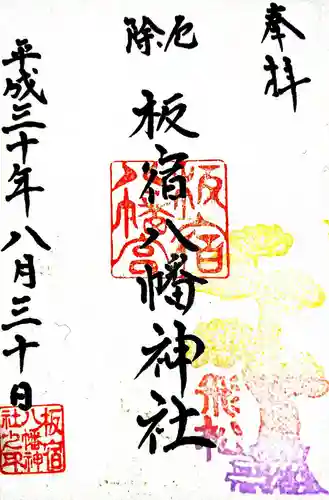 奉拝
厄除
板宿八幡神社
板宿
八幡宮
飛松
平成三十年八月三十日
板宿
八幡神
社之印